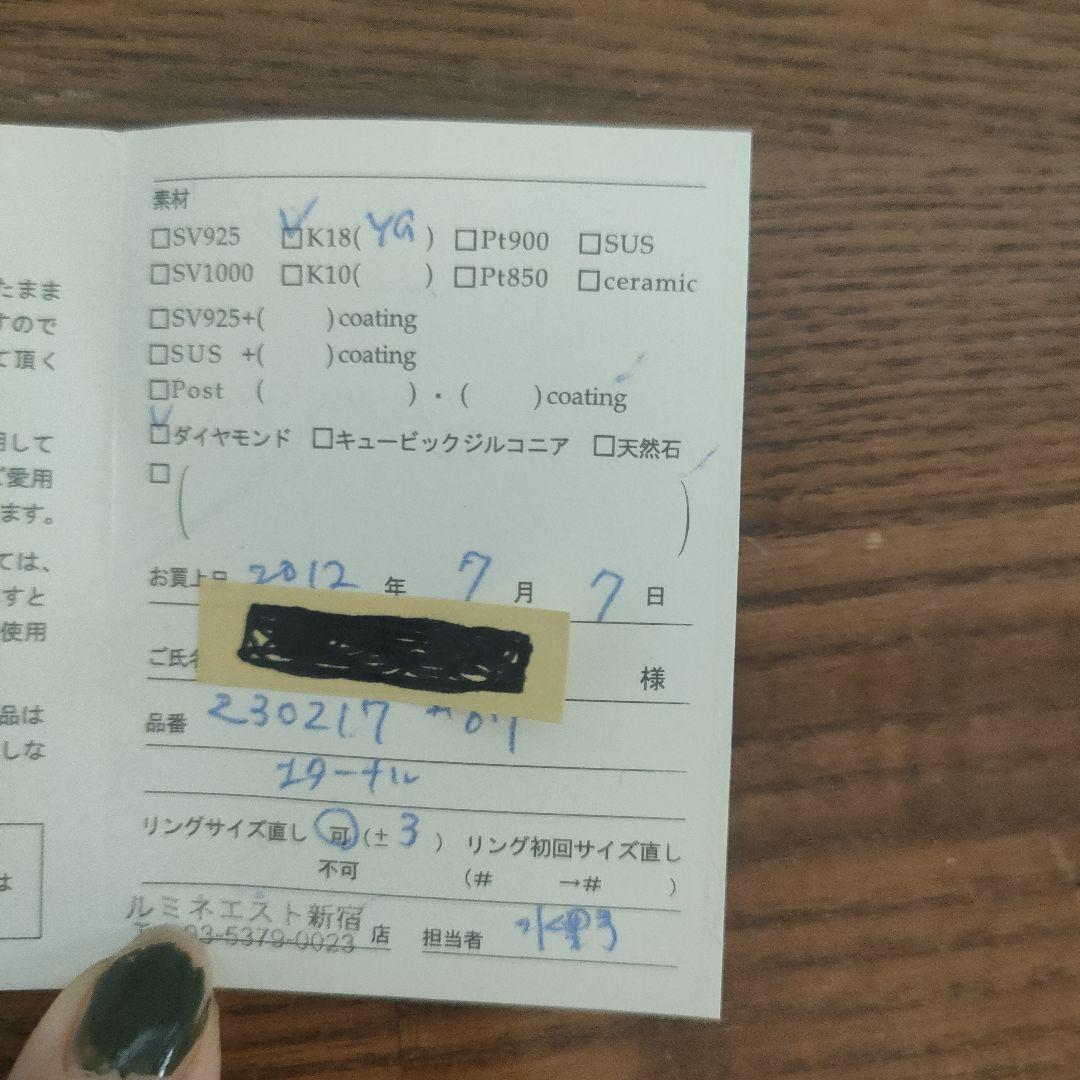 たまま
すので
て頂く
用して
ご愛用
ます。
ては、
すと
使用
品は
しな
は
素材
□SV925 □K18( YG ) □Pt900 □SUS
□SV1000 □K10( ) □Pt850 □ceramic
□SV925+( )coating
□SUS +( )coating
□Post ( )・( )coating
□ダイヤモンド □キュービックジルコニア □天然石
□( )
お買上日 2012 年 7 月 7 日
ご氏名 様
品番 230217
エターナル
リングサイズ直し 可 (± 3 ) リング初回サイズ直し
不可 (# →# )
ルミネエスト新宿
03-5379-0023 店 担当者 水野